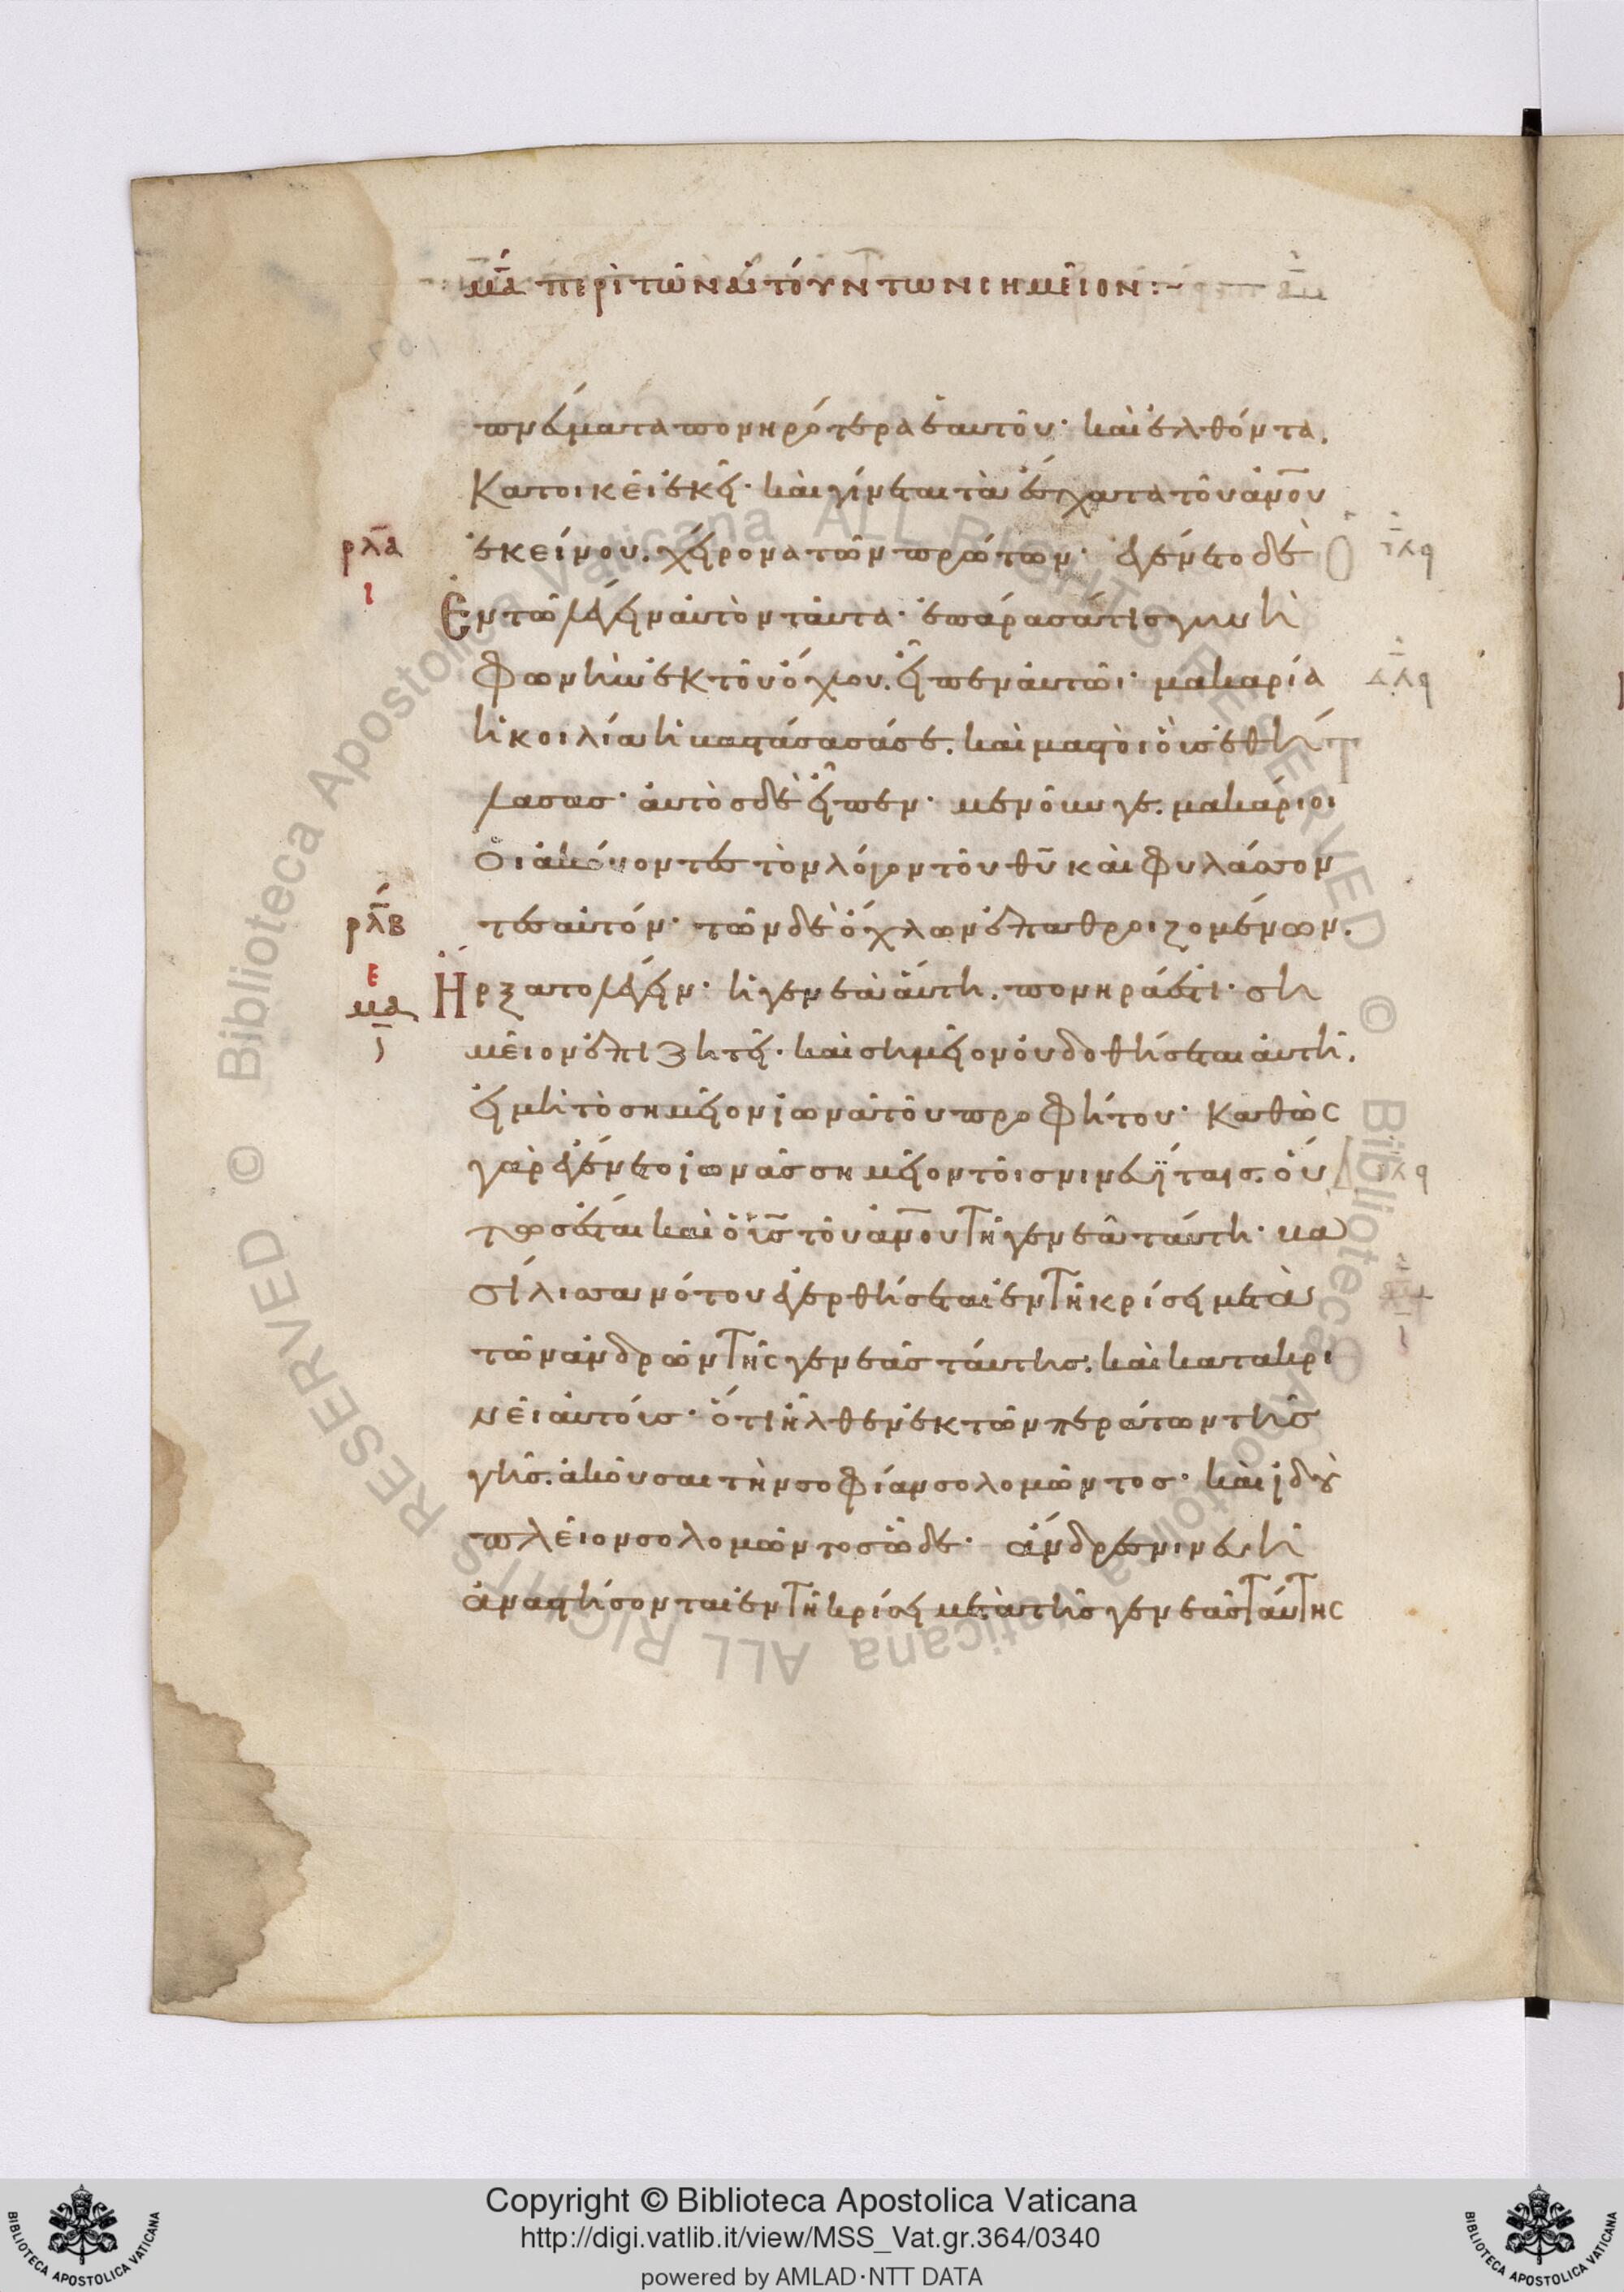 μα περὶ τῶν αἰτούντων σημεῖον :~
πνεύματα πονηρότερα ἑαυτοῦ· καὶ ἐλθόντα.
Κατοικεῖ ἐκεῖ· καὶ γίνεται τὰ ἔσχατα τοῦ ἀνου
ρλα ἐκείνου. χείρονα τῶν πρώτων· ἐγένετο δὲ
ι Ἐν τῶ λέγειν αὐτὸν ταῦτα· ἐπάρασά τις γυνὴ
Φωνὴν ἐκ τοῦ ὄχλου. εἶπεν αὐτῶι· μακαρία
ἡ κοιλία ἡ βαστάσασά σε. καὶ μαστοὶ οὓς ἐθή
λασας· αὐτὸς δὲ εἶπεν· μενοῦν γε. μακάριοι
οἱ ἀκούοντες τὸν λόγον τοῦ θυ καὶ φυλάσσον
ρλβ τες αὐτόν· τῶν δὲ ὄχλων ἐπαθροιζομένων.
ε
μα Ἤρξατο λέγειν· ἡ γενεὰ αὕτη. πονηρά ἐστι· ση
ι
μεῖον ἐπιζητεῖ· καὶ σημεῖον οὐ δοθήσεται αὐτῆ.
εἰ μὴ τὸ σημεῖον ἰωνᾶ τοῦ προφήτου· Καθὼς
γὰρ ἐγένετο ἰωνᾶς σημεῖον τοῖς νινευΐταις. οὕ
τως ἔσται καὶ ὁ υἱς τοῦ ἀνου τῆ γενεᾶ ταύτη· βα
σίλισσα νότου ἐγερθήσεται ἐν τῆ κρίσει μετὰ
τῶν ἀνδρῶν τῆς γενεᾶς ταύτης. καὶ κατακρι
νεῖ αὐτούς· ὅτι ἦλθεν ἐκ τῶν περάτων τῆς
γῆς. ἀκοῦσαι τὴν σοφίαν σολομῶντος· καὶ ἰδοὺ
πλεῖον σολομῶντος ὧδε· ἄνδρες νινευῆ
ἀναστήσονται ἐν τῆ κρίσει μετὰ τῆς γενεᾶς ταύτης
Copyright © Biblioteca Apostolica Vaticana
http://digi.vatlib.it/view/MSS_Vat.gr.364/0340
powered by AMLAD·NTT DATA
BIBLIOTECA APOSTOLICA VATICANA
BIBLIOTECA APOSTOLICA VATICANA
© Biblioteca Apostolica Vaticana ALL RIGHTS RESERVED
© Biblioteca Apostolica Vaticana ALL RIGHTS RESERVED